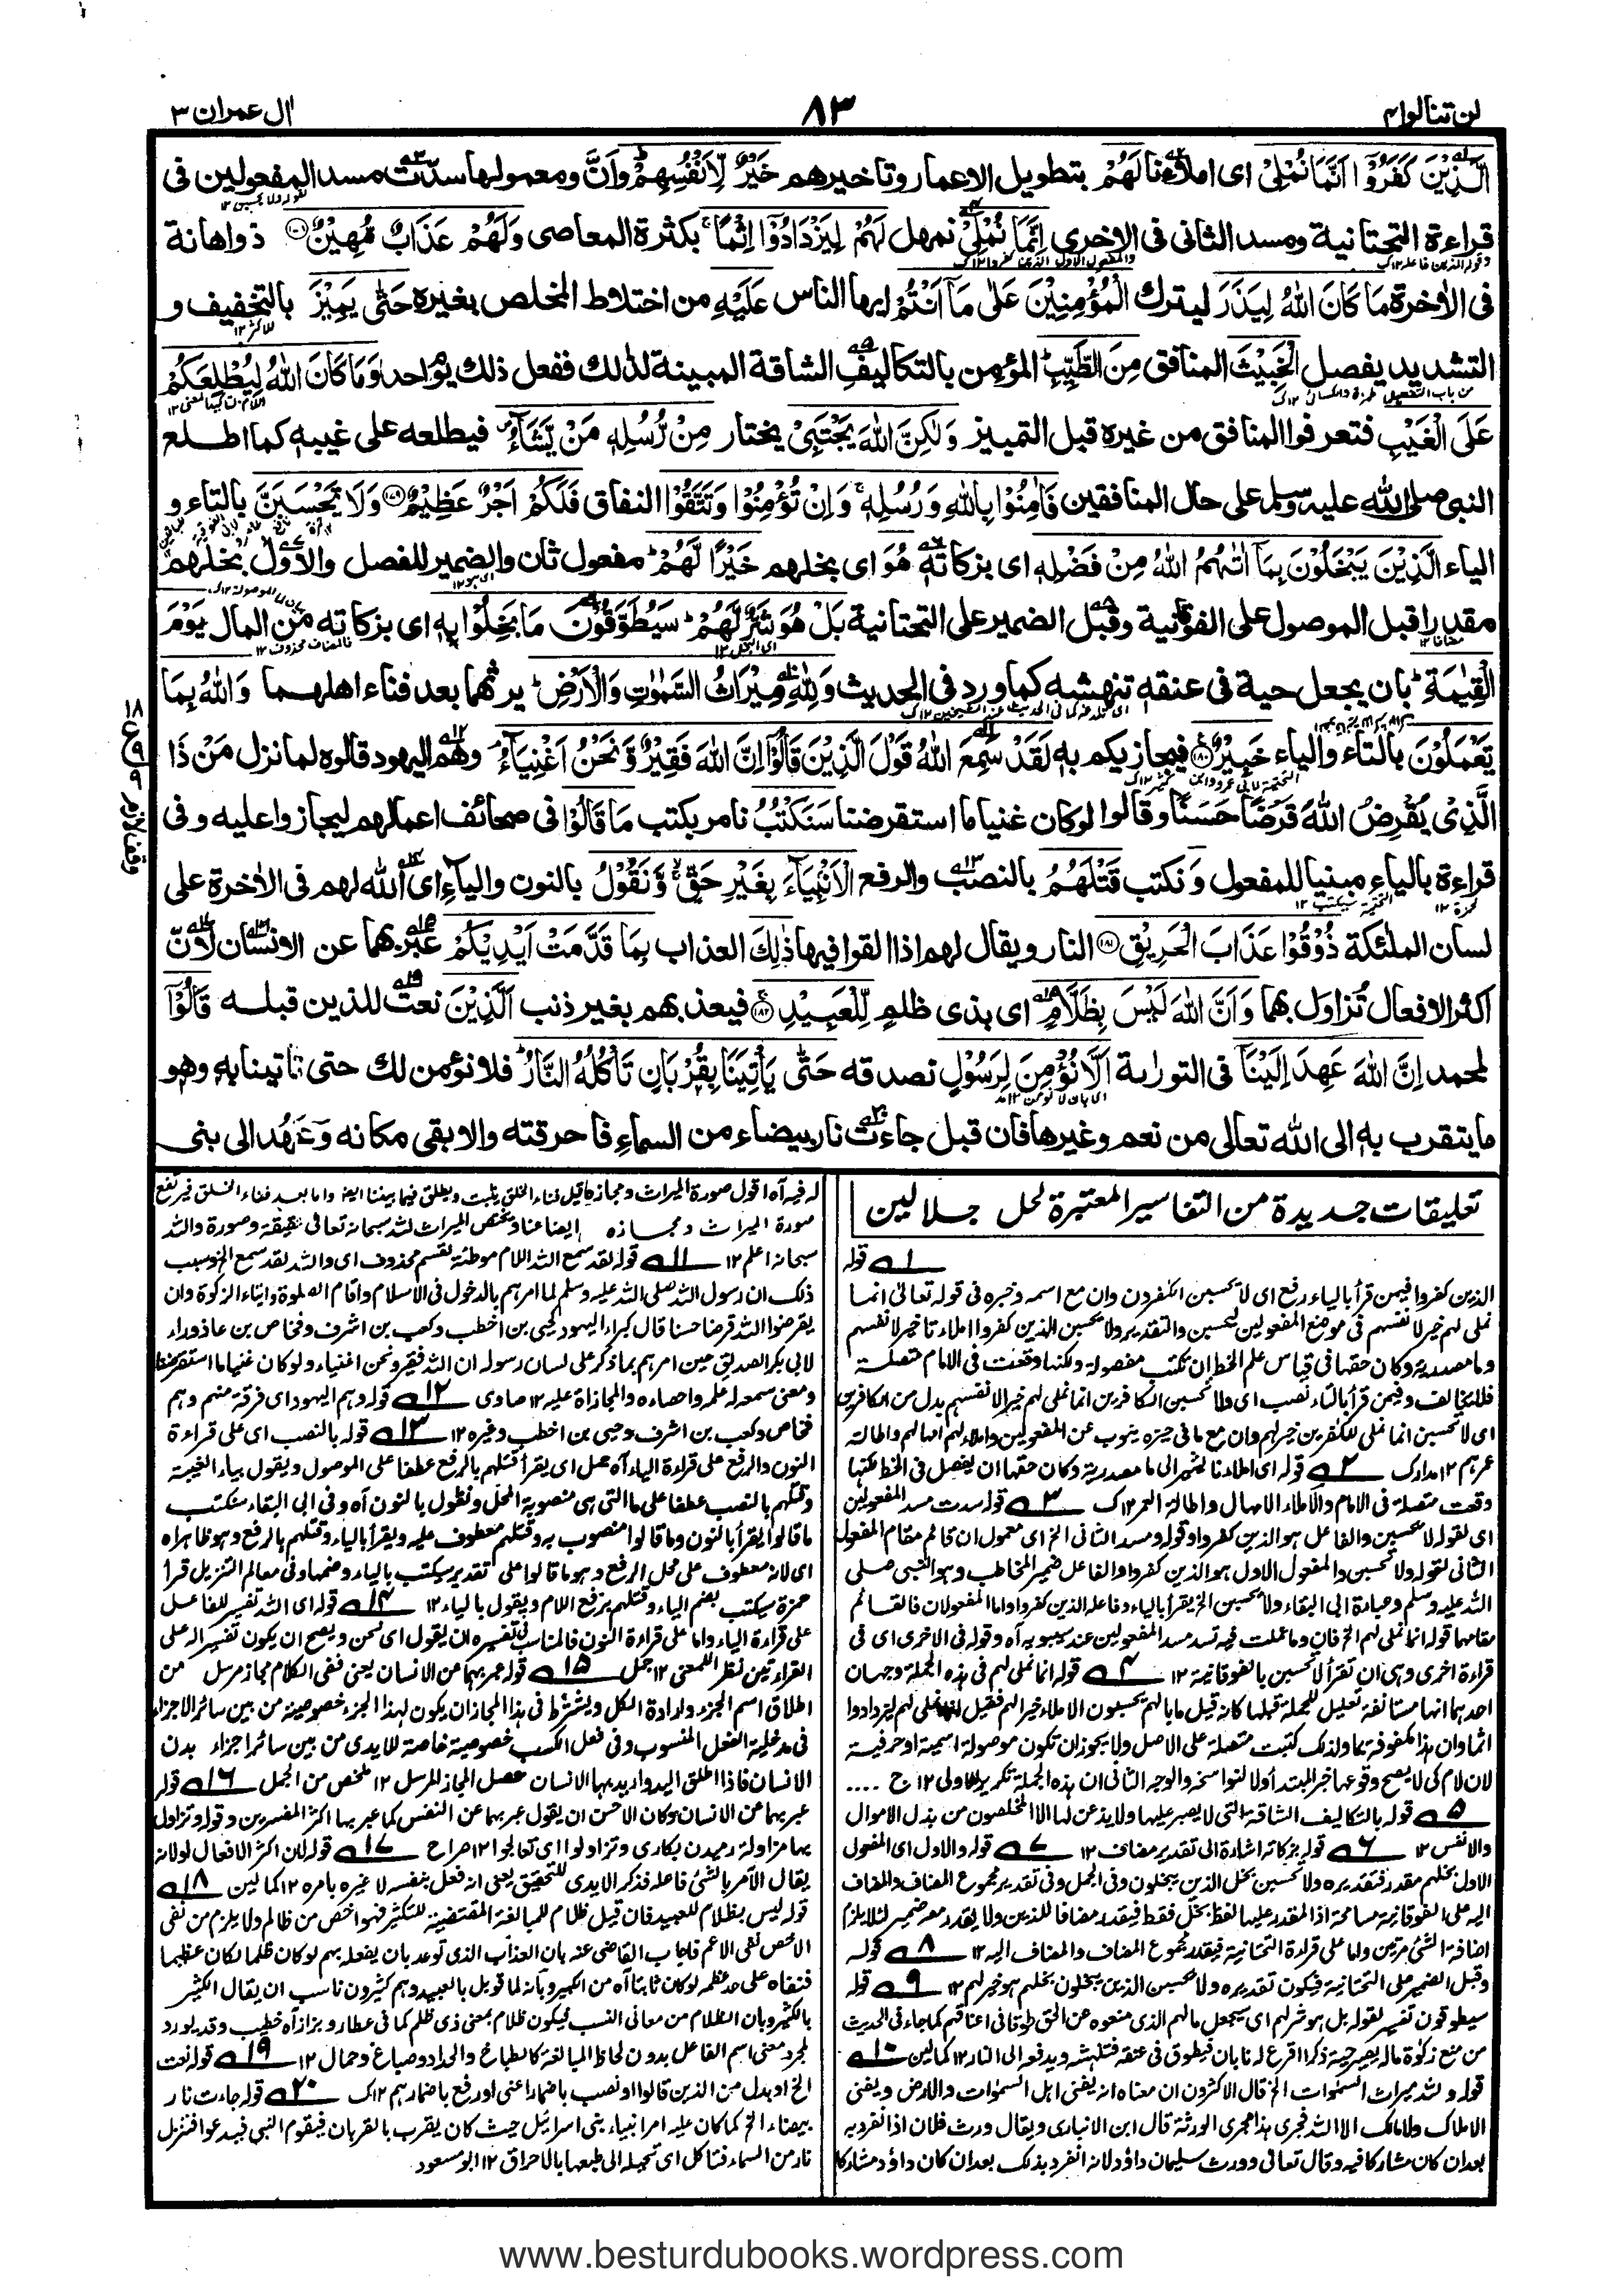 لن تنالوا ۴
٨٣
اٰل عمران ٣
الَّذِيْنَ كَفَرُوْٓا اَنَّمَا نُمْلِىْ اى املاءنا لَهُمْ بتطويل الاعمار وتاخيرهم خَيْرٌ لِّاَنْفُسِهِمْ ؕ وَاَنَّ ومعمولها سدّت مسد المفعولين فى
قراءة التحتانية ومسد الثانى فى الاخرى اِنَّمَا نُمْلِىْ نمهل لَهُمْ لِيَزْدَادُوْٓا اِثْمًا ۚ بكثرة المعاصى وَلَهُمْ عَذَابٌ مُّهِيْنٌ ذو اهانة
فى الاٰخرة مَا كَانَ اللّٰهُ لِيَذَرَ ليترك الْمُؤْمِنِيْنَ عَلٰى مَآ اَنْتُمْ ايها الناس عَلَيْهِ من اختلاط المخلص بغيره حَتّٰى يَمِيْزَ بالتخفيف و
التشديد يفصل الْخَبِيْثَ المنافق مِنَ الطَّيِّبِ ؕ المؤمن بالتكاليف الشاقة المبينة لذلك ففعل ذلك يوم احد وَمَا كَانَ اللّٰهُ لِيُطْلِعَكُمْ
عَلَى الْغَيْبِ فتعرفوا المنافق من غيره قبل التمييز وَلٰكِنَّ اللّٰهَ يَجْتَبِىْ يختار مِنْ رُّسُلِهٖ مَنْ يَّشَآءُ فيطلعه على غيبه كما اطلع
النبى صلى الله عليه وسلم على حال المنافقين فَاٰمِنُوْا بِاللّٰهِ وَرُسُلِهٖ ۚ وَاِنْ تُؤْمِنُوْا وَتَتَّقُوْا النفاق فَلَكُمْ اَجْرٌ عَظِيْمٌ ﴿١٧٩﴾ وَلَا يَحْسَبَنَّ بالتاء و
الياء الَّذِيْنَ يَبْخَلُوْنَ بِمَآ اٰتٰىهُمُ اللّٰهُ مِنْ فَضْلِهٖ اى بزكاته هُوَ اى بخلهم خَيْرًا لَّهُمْ ؕ مفعول ثان والضمير للفصل والاول بخلهم
مقدرا قبل الموصول على الفوقانية وقبل الضمير على التحتانية بَلْ هُوَ شَرٌّ لَّهُمْ ؕ سَيُطَوَّقُوْنَ مَا بَخِلُوْا بِهٖ اى بزكاته من المال يَوْمَ
الْقِيٰمَةِ ؕ بان يجعل حية فى عنقه تنهشه كما ورد فى الحديث وَلِلّٰهِ مِيْرَاثُ السَّمٰوٰتِ وَالْاَرْضِ ؕ يرثهما بعد فناء اهلهما وَاللّٰهُ بِمَا
تَعْمَلُوْنَ بالتاء والياء خَبِيْرٌ ﴿١٨٠﴾ فيجازيكم به لَقَدْ سَمِعَ اللّٰهُ قَوْلَ الَّذِيْنَ قَالُوْٓا اِنَّ اللّٰهَ فَقِيْرٌ وَّنَحْنُ اَغْنِيَآءُ وهم اليهود قالوه لما نزل مَنْ ذَا
الَّذِىْ يُقْرِضُ اللّٰهَ قَرْضًا حَسَنًا وقالوا لو كان غنيا ما استقرضنا سَنَكْتُبُ نامر بكتب مَا قَالُوْا فى صحائف اعمالهم ليجازوا عليه وفى
قراءة بالياء مبنيا للمفعول وَ نكتب قَتْلَهُمُ بالنصب والرفع الْاَنْۢبِيَآءَ بِغَيْرِ حَقٍّ ۙ وَّنَقُوْلُ بالنون والياء اى الله لهم فى الاٰخرة على
لسان الملٰئكة ذُوْقُوْا عَذَابَ الْحَرِيْقِ ﴿١٨١﴾ النار ويقال لهم اذا القوا فيها ذٰلِكَ العذاب بِمَا قَدَّمَتْ اَيْدِيْكُمْ عبر بهما عن الانسان لان
اكثر الافعال تُزاول بهما وَاَنَّ اللّٰهَ لَيْسَ بِظَلَّامٍ اى بذى ظلم لِّلْعَبِيْدِ ﴿١٨٢﴾ فيعذبهم بغير ذنب اَلَّذِيْنَ نعت للذين قبله قَالُوْٓا
لمحمد اِنَّ اللّٰهَ عَهِدَ اِلَيْنَآ فى التورٰىة اَلَّا نُؤْمِنَ لِرَسُوْلٍ نصدقه حَتّٰى يَاْتِيَنَا بِقُرْبَانٍ تَاْكُلُهُ النَّارُ ؕ فلا نؤمن لك حتى تاتينا به وهو
ما يتقرب به الى الله تعالى من نعم وغيرها فان قبل جاءت نار بيضاء من السماء فاحرقته والا بقى مكانه وعُهِد الى بنى
تعليقات جديدة من التفاسير المعتبرة لحل جلالين
١ قوله
الذين كفروا فيمن قرأ بالياء رفع اى لا يحسبن الكفرون وان مع اسمه وخبره فى قوله تعالى انما
نملى لهم خير لانفسهم فى موضع المفعولين ليحسبن والتقدير ولا يحسبن الذين كفروا املاءنا خير لانفسهم
وما مصدرية وكان حقها فى قياس علم الخط ان تكتب مفصولة ولكنها وقعت فى الامام متصلة
فلا يخالف وفيمن قرأ بالتاء نصب اى ولا تحسبن الكافرين انما نملى لهم خير لانفسهم بدل من الكافرين
اى لا تحسبن انما نملى للكفرين خير لهم وان مع ما فى حيزه ينوب عن المفعولين واملاء لهم امهالهم واطالة
عمرهم ١٢ مدارك ٢ قوله اى املاءنا يشير الى ما مصدرية وكان حقها ان يفصل فى الخط لكنها
وقعت متصلة فى الامام والاملاء الامهال واطالة العمر ١٢ك ٣ قوله سدت مسد المفعولين
اى لقوله لا يحسبن والفاعل هو الذين كفروا وقوله ومسد الثانى الخ اى معمول ان قائم مقام المفعول
الثانى لقوله ولا تحسبن والمفعول الاول هو الذين كفروا والفاعل ضمير المخاطب وهو النبى صلى
الله عليه وسلم وعبارة ابى البقاء ولا يحسبن الخ يقرأ بالياء وفاعله الذين كفروا واما المفعولان فالقائم
مقامها قوله انما نملى لهم الخ فان وما عملت فيه تسد مسد المفعولين عند سيبويه آه وقوله فى الاخرى اى فى
قراءة اخرى وهى ان تقرأ لا تحسبن بالفوقانية ١٢ ٤ قوله انما نملى لهم فى هذه الجملة وجهان
احدهما انها مستانفة تعليل للجملة قبلها كانه قيل ما بالهم يحسبون الاملاء خيرا لهم فقيل انما نملى لهم ليزدادوا
اثما وان هذا مكفوفة بما ولذلك كتبت متصلة على الاصل ولا يجوز ان تكون موصولة اسمية او حرفية
لان لام كى لا يصح وقوعها خبر المبتدأ ولا لنواسخه والوجه الثانى ان هذه الجملة تكرير للاولى ١٢ ج ....
٥ قوله بالتكاليف الشاقة التى لا يصبر عليها ولا يذعن لها الا المخلصون من بذل الاموال
والانفس ١٢ ٦ قوله بزكاته اشارة الى تقدير مضاف ١٢ ٧ قوله والاول اى المفعول
الاول بخلهم مقدر فتقديره ولا تحسبن بخل الذين يبخلون وفى الجمل وفى تقدير مجموع المضاف والمضاف
اليه على الفوقانية مسامحة اذا المقدر عليها لفظ بخل فقط فيقدر مضافا للذين ولا يقدر معه ضمير لئلا يلزم
اضافة الشئ مرتين واما على قراءة التحتانية فيقدر مجموع المضاف والمضاف اليه ١٢ ٨ قوله
وقبل الضمير على التحتانية فيكون تقديره ولا يحسبن الذين يبخلون بخلهم هو خير لهم ١٢ ٩ قوله
سيطوقون تفسير لقوله بل هو شر لهم اى سيجعل مالهم الذى منعوه عن الحق طوقا فى اعناقهم كما جاء فى الحديث
من منع زكوة ماله يصير حية ذكرا اقرع له نابان فيطوق فى عنقه فتنهشه ويدفعه الى النار ١٢ كمالين ١٠
قوله ولله ميراث السموات الخ قال الاكثرون ان معناه انه يفنى اهل السموات والارض ويفنى
الاملاك ولا مالك الا الله فجرى هذا مجرى الورثة قال ابن الانبارى ويقال ورث فلان اذا انفرد به
بعد ان كان مشاركا فيه وقال تعالى وورث سليمان داؤد لانه انفرد بذلك بعد ان كان داؤد مشاركا
له فيه آه اقول صورة الميراث ومجازه ما قيل فناء الخلق يثبت ويطلق فيما بيننا ايضا واما بعد فناء الخلق فيرتفع
صورة الميراث ومجازه ايضا عنا ويختص الميراث لله سبحانه تعالى حقيقة وصورة والله
سبحانه اعلم ١٢ ١١ قوله لقد سمع الله اللام موطئة لقسم محذوف اى والله لقد سمع الخ وسبب
ذلك ان رسول الله صلى الله عليه وسلم لما امرهم بالدخول فى الاسلام واقام الصلوة وايتاء الزكوة وان
يقرضوا الله قرضا حسنا قال كبراء اليهود كحيى بن اخطب وكعب بن اشرف وفنحاص بن عاذوراء
لابى بكر الصديق حين امرهم بما ذكر على لسان رسوله ان الله فقير ونحن اغنياء ولو كان غنيا ما استقرضنا
ومعنى سمعه له علمه واحصاءه والمجازاة عليه ١٢ صاوى ١٢ قوله وهم اليهود اى فرقة منهم وهم
فنحاص وكعب بن اشرف وحيى بن اخطب وغيره ١٢ ١٣ قوله بالنصب اى على قراءة
النون والرفع على قراءة الياء آه جمل اى يقرأ قتلهم بالرفع عطفا على الموصول ويقول بياء الغيبة
وقتلهم بالنصب عطفا على ما التى هى منصوبة المحل ونقول بالنون آه وفى ابى البقاء سنكتب
ما قالوا يقرأ بالنون وما قالوا منصوب به وقتلهم معطوف عليه ويقرأ بالياء وقتلهم بالرفع وهو ظاهر آه
اى لانه معطوف على محل الرفع وهو ما قالوا على تقدير سيكتب بالياء وضمها وفى معالم التنزيل قرأ
حمزة سيكتب بضم الياء وقتلهم برفع اللام ويقول بالياء ١٢ ١٤ قوله اى الله تفسير للفاعل
على قراءة الياء واما على قراءة النون فالمناسب فى تفسيره ان يقول اى نحن ويصح ان يكون تفسيرا له على
القراءتين نظر اللمعنى ١٢ جمل ١٥ قوله عبر بهما عن الانسان يعنى ففى الكلام مجاز مرسل من
اطلاق اسم الجزء وارادة الكل ويشترط فى هذا المجاز ان يكون لهذا الجزء خصوصية من بين سائر الاجزاء
فى مدخلية الفعل المنسوب وفى فعل الكسب خصوصية خاصة للايدى من بين سائر اجزاء بدن
الانسان فاذا اطلق اليد واريد بها الانسان حصل المجاز المرسل ١٢ ملخص من الجمل ١٦ قوله
عبر بهما عن الانسان وكان الاحسن ان يقول عبر بهما عن النفس كما عبر بها اكثر المفسرين وقوله وتزاول
بهما مزاولة رميدن بكارى وتزاولوا اى تعالجوا ١٢ صراح ١٧ قوله لان اكثر الافعال لولانه
يقال الآمر بالشئ فاعله فذكر الايدى للتحقيق يعنى انه فعل بنفسه لا غيره بامره ١٢ كمالين ١٨
قوله ليس بظلام للعبيد فان قيل ظلام للمبالغة المقتضية للتكثير فهو اخص من ظالم ولا يلزم من نفى
الاخص نفى الاعم فاجاب القاضى عنه بان العذاب الذى توعد بان يفعله بهم لو كان ظلما لكان عظيما
فنفاه على حد عظمه لو كان ثابتا آه من الكبير وبانه لما قوبل بالعبيد وهم كثيرون ناسب ان يقال الكثير
بالكثير وبان الظلام من معانى النسب فيكون ظلام بمعنى ذى ظلم كما فى عطار وبزاز آه خطيب وقد يورد
لمجرد معنى اسم الفاعل بدون لحاظ المبالغة كالطباخ والحداد وصباغ وحمال ١٢ ١٩ قوله نعت
الخ او بدل من الذين قالوا او نصب باضمار اعنى او رفع باضمار هم ١٢ك ٢٠ قوله جاءت نار
بيضاء الخ كما كان عليه امر انبياء بنى اسرائيل حيث كان يقرب بالقربان فيقوم النبى فيدعو فتنزل
نار من السماء فتاكل اى تحيله الى طبعها بالاحراق ١٢ ابو مسعود
www.besturdubooks.wordpress.com